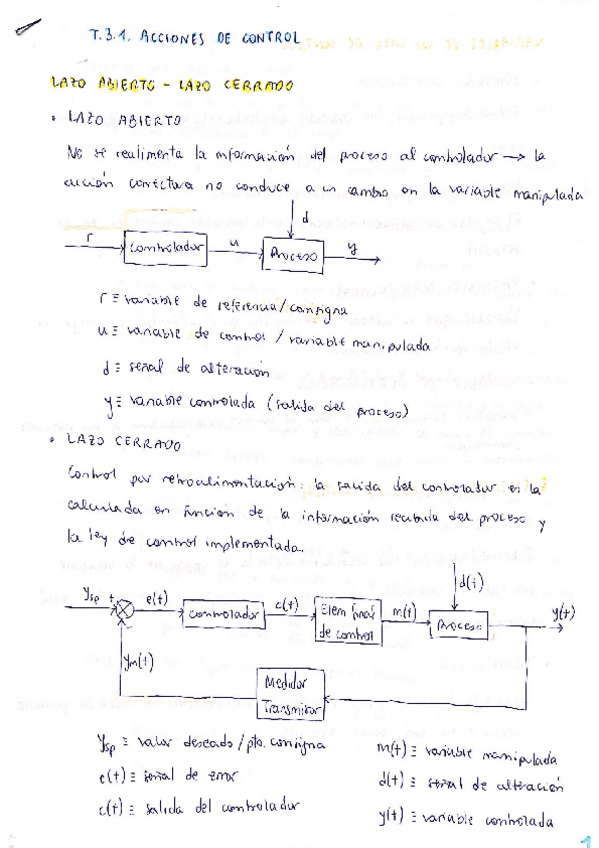 T.3.1. ACCIONES DE CONTROL
LAZO ABIERTO - LAZO CERRADO
• LAZO ABIERTO
No se realimenta la información del proceso al controlador → la
acción correctiva no conduce a un cambio en la variable manipulada
d
r Controlador u Proceso y
r ≡ variable de referencia/consigna
u ≡ variable de control / variable manipulada
d ≡ señal de alteración
y ≡ variable controlada (salida del proceso)
• LAZO CERRADO
Control por retroalimentación: la salida del controlador es la
calculada en función de la información recibida del proceso y
la ley de control implementada.
d(t)
ysp + e(t) controlador c(t) Elem final de control m(t) Proceso y(t)
-
ym(t)
Medidor
Transmisor
ysp ≡ valor deseado/pto. consigna
e(t) ≡ señal de error
c(t) ≡ salida del controlador
m(t) ≡ variable manipulada
d(t) ≡ señal de alteración
y(t) ≡ variable controlada
1